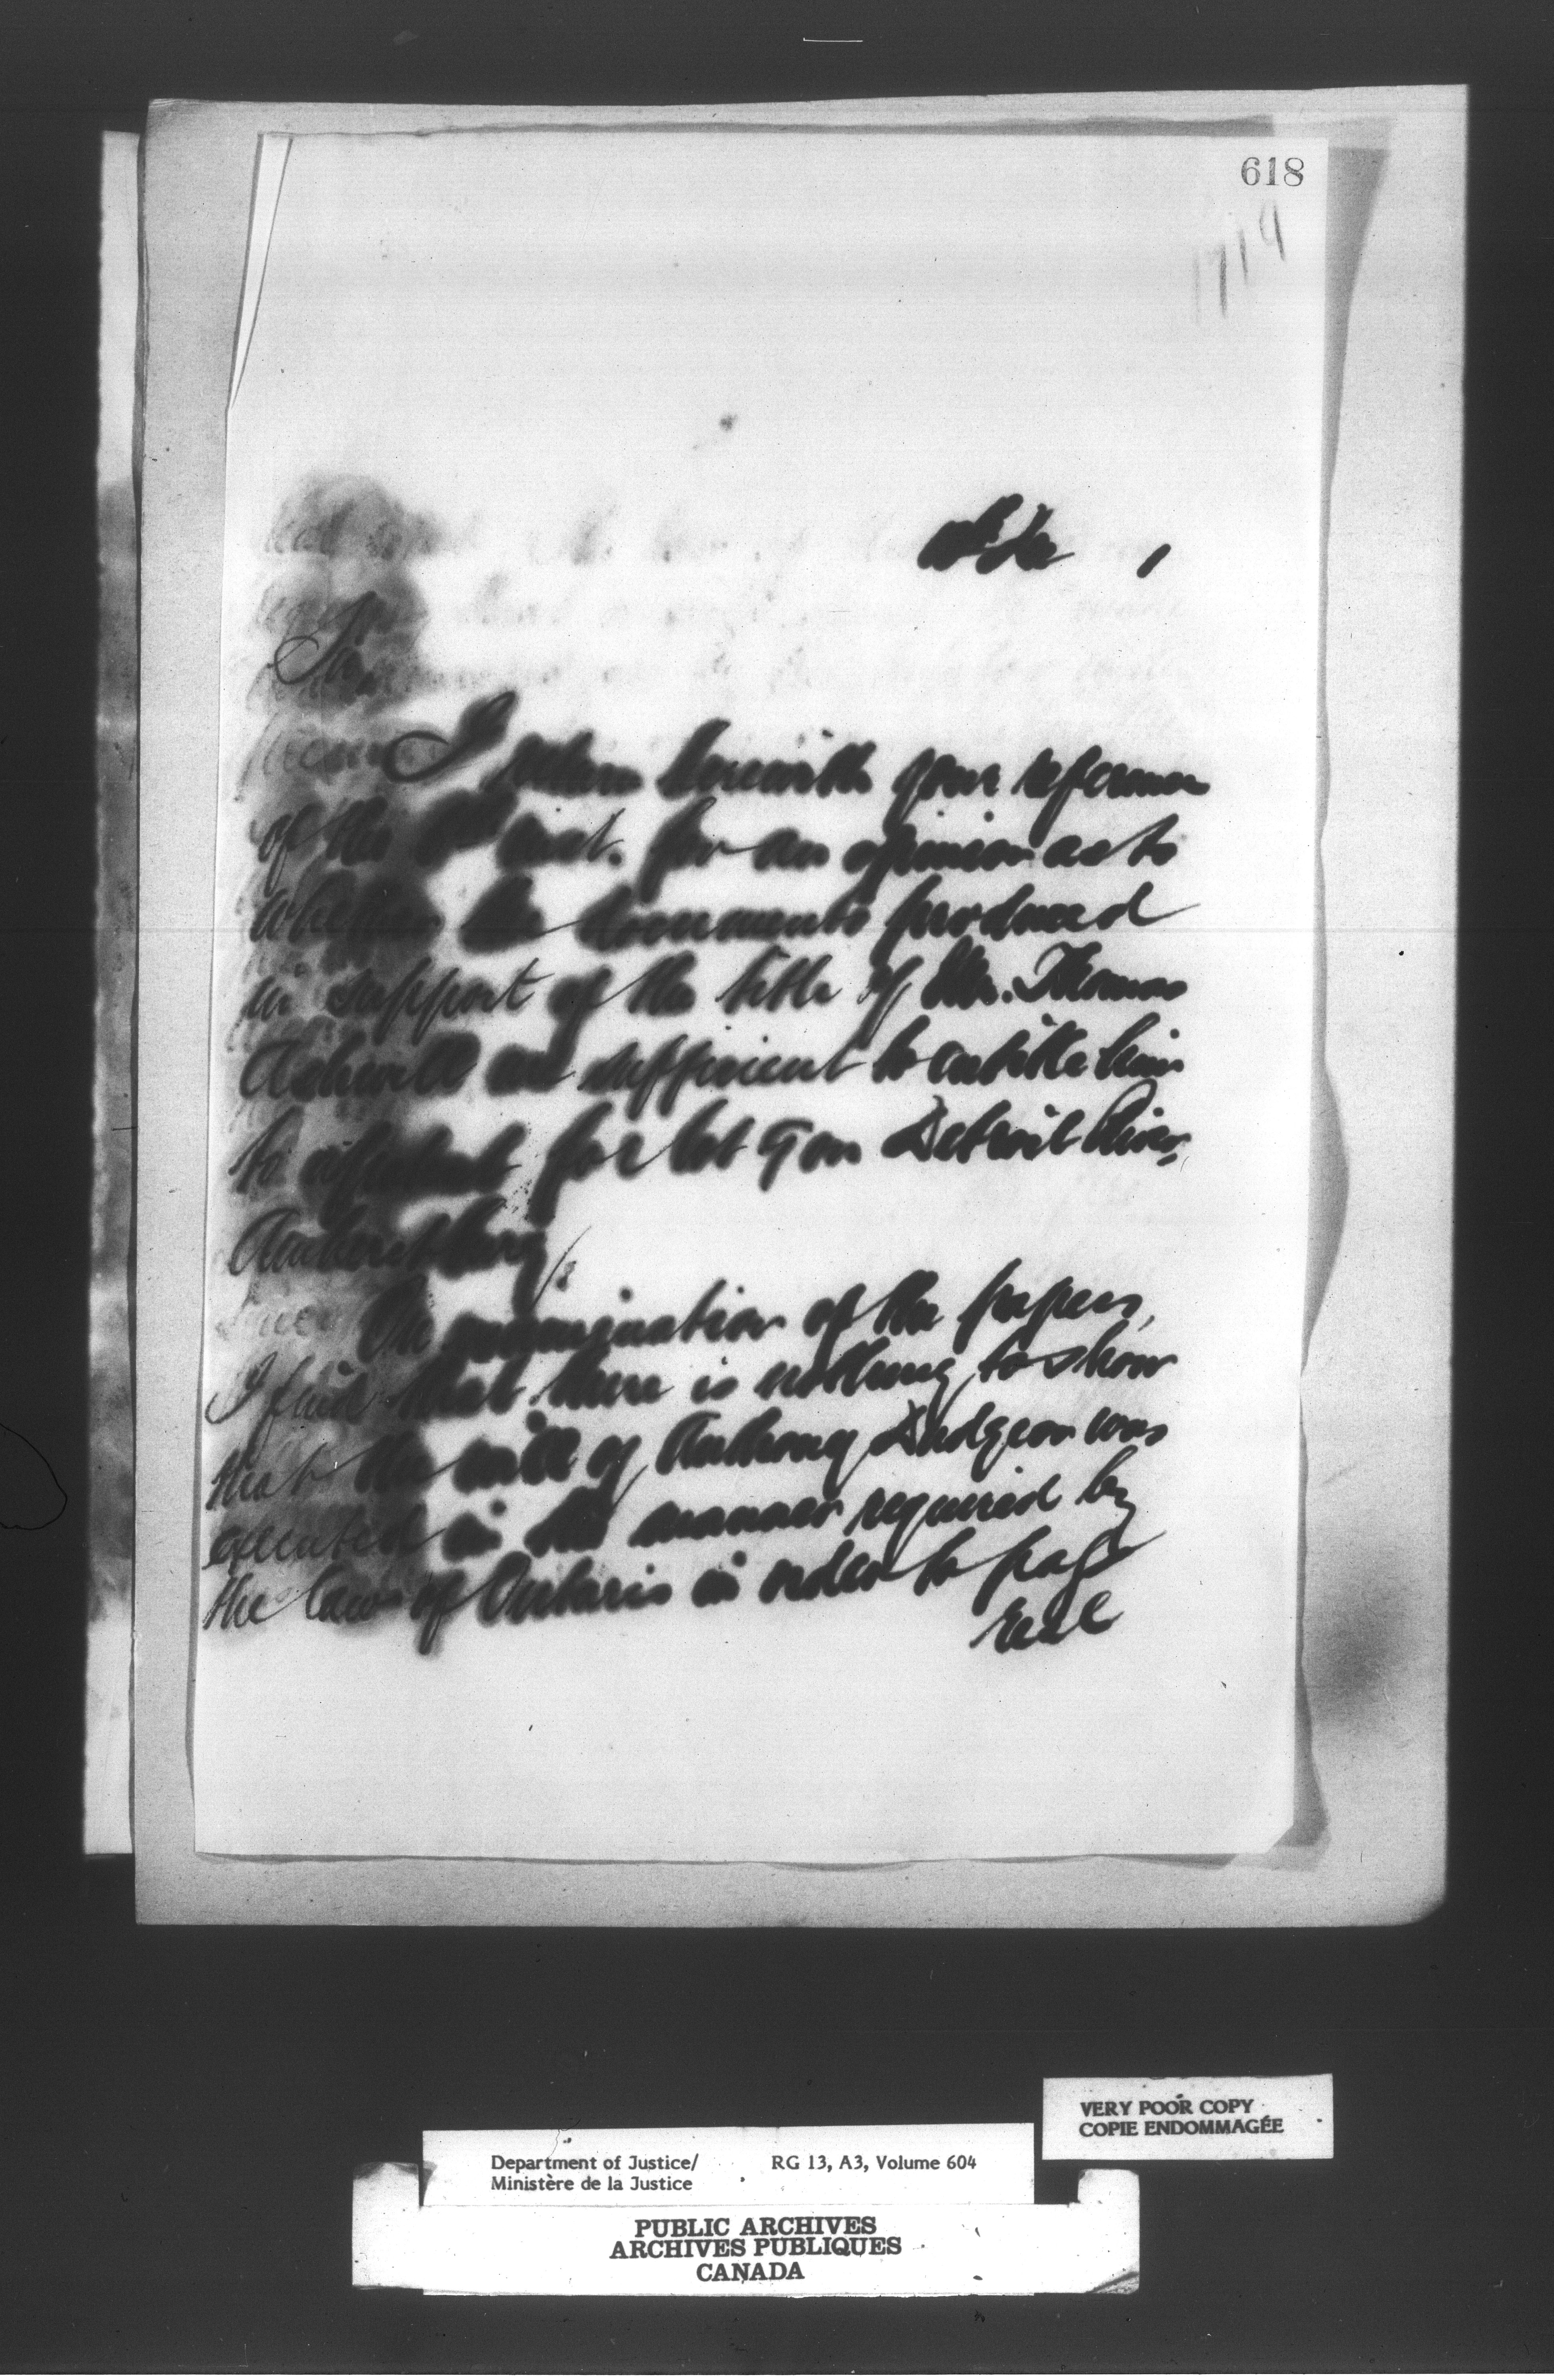 618
1719
Sir
I return herewith your reference
of the inst. for an opinion as to
whether the documents produced
in support of the title of Mr. Thomas
are sufficient to entitle him
to a patent for lot 9 on Detroit River,
Amherstburg
On examination of the papers,
I find that there is nothing to show
that the will of Anthony Dudgeon was
executed in the manner required by
the laws of Ontario in order to pass
real
VERY POOR COPY
COPIE ENDOMMAGÉE
Department of Justice/ RG 13, A3, Volume 604
Ministère de la Justice
PUBLIC ARCHIVES
ARCHIVES PUBLIQUES
CANADA